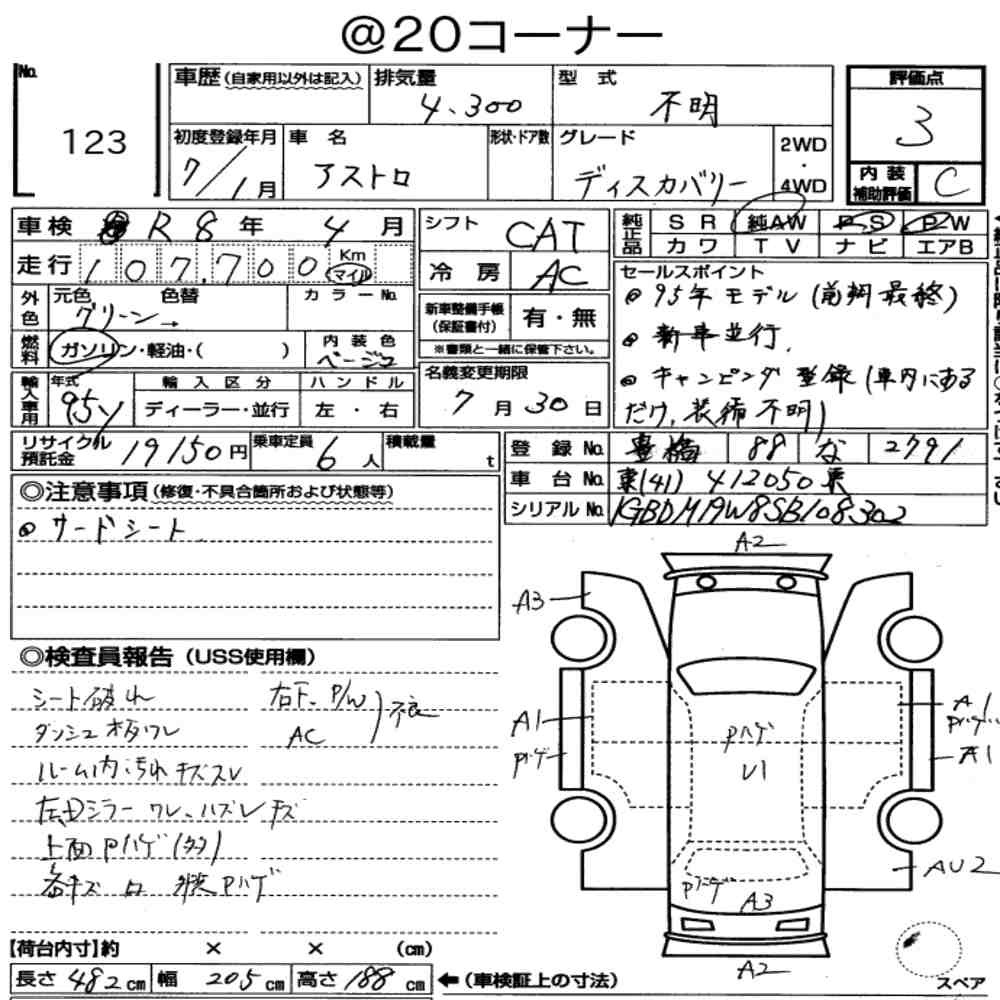 @20コーナー
No. 123
車歴 (自家用以外は記入) 排気量 4.300 型式 不明 評価点 3
初度登録年月 7/1月 車名 アストロ 形状・ドア数 グレード ディスカバリー 2WD・4WD 内装補助評価 C
車検 R8年 4月 シフト CAT 純正品 SR 純AW PS PW
走行 107.700 Km マイル 冷房 AC カワ TV ナビ エアB
外色 元色 グリーン→ 色替 カラーNo. 新車整備手帳(保証書付) 有・無 セールスポイント
@ 95年モデル(前期最終)
燃料 ガソリン・軽油・( ) 内装色 ベージュ ※書類と一緒に保管下さい。
@ 新車並行.
輸入車用 年式 95y 輸入区分 ディーラー・並行 ハンドル 左・右 名義変更期限 7月30日
@ キャンピング登録(車内にある
だけ,装備不明)
リサイクル預託金 19150円 乗車定員 6人 積載量 t 登録No. 豊橋 88 な 2791
車台No. 東(41)412050東
◎注意事項 (修復・不具合箇所および状態等) シリアルNo. 1GBDM19W8SB108302
@ サードシート
A2
A3
◎検査員報告 (USS使用欄)
シート破れ 右下.P/W
ダッシュ板ワレ AC 不良
ルーム内汚れキズスレ
左右ミラーワレ、ハズレキズ
上面Pハゲ(多)
各キズ 凹 外装Pハゲ
A1 Pハゲ Pハゲ U1 A1 Pハゲ A1
AU2
Pハゲ A3
A2
スペア
【荷台内寸】約 × × (cm)
長さ 482cm 幅 205cm 高さ 188cm ←(車検証上の寸法)